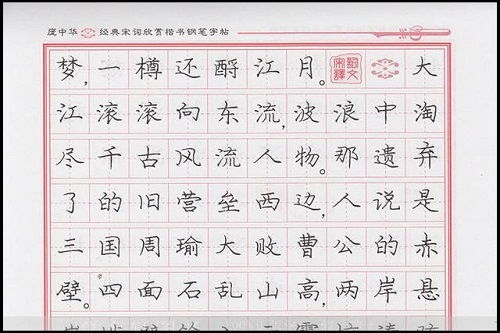 庞中华 经典宋词欣赏楷书钢笔字帖
梦，一樽还酹江月。 大
江滚滚向东流，波浪中淘
尽千古风流人物。那遗弃
了的旧营垒西边，人说是
三国周瑜大败曹公的赤
壁。四面石乱山高，两岸悬